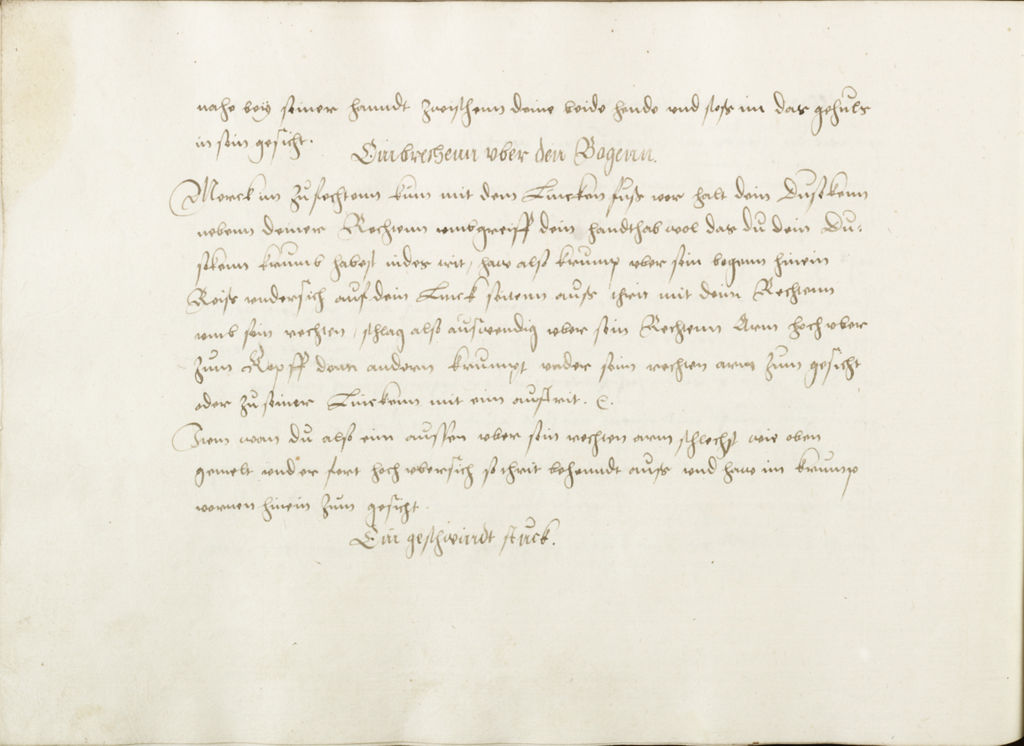 nahe bey seiner hanndt zwischenn deine beide hende vnd stoss im das gehuls
in sein gesicht.
Einbrechenn vber den Bogenn.
Merck im zufechtenn kum mit dem Lincken fuss vor halt dein Dusѣkenn
nebenn deiner Rechtenn vmbgreiff dein handthab wol das du dein Du-
sekenn krumb habest indes trit, haw also krump vber sein bogenn hinein
Reiss vndersich auf dein Linck seitenn auss ihm mit deim Rechtenn
vmb sein rechten, schlag also auswendig vber sein Rechtenn Arm hoch vber
zum Kopff denn andern krumpt vnder seim rechten arm zum gesicht
oder zu seiner Linckenn mit eim austrit. &.
Item wan du also eim aussen vber sein rechten arm schlechst wie oben
gemelt vnd er fert hoch vbersich so thrit behenndt auss vnd haw im krump
vornen hinein zum gesicht.
Ein geschwindt stuck.